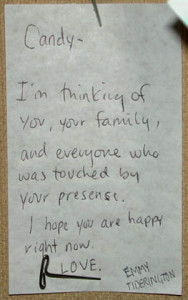 Candy-
I'm thinking of
you, your family,
and everyone who
was touched by
your presense.
I hope you are happy
right now.
LOVE.
EMMY
TIDERINGTON